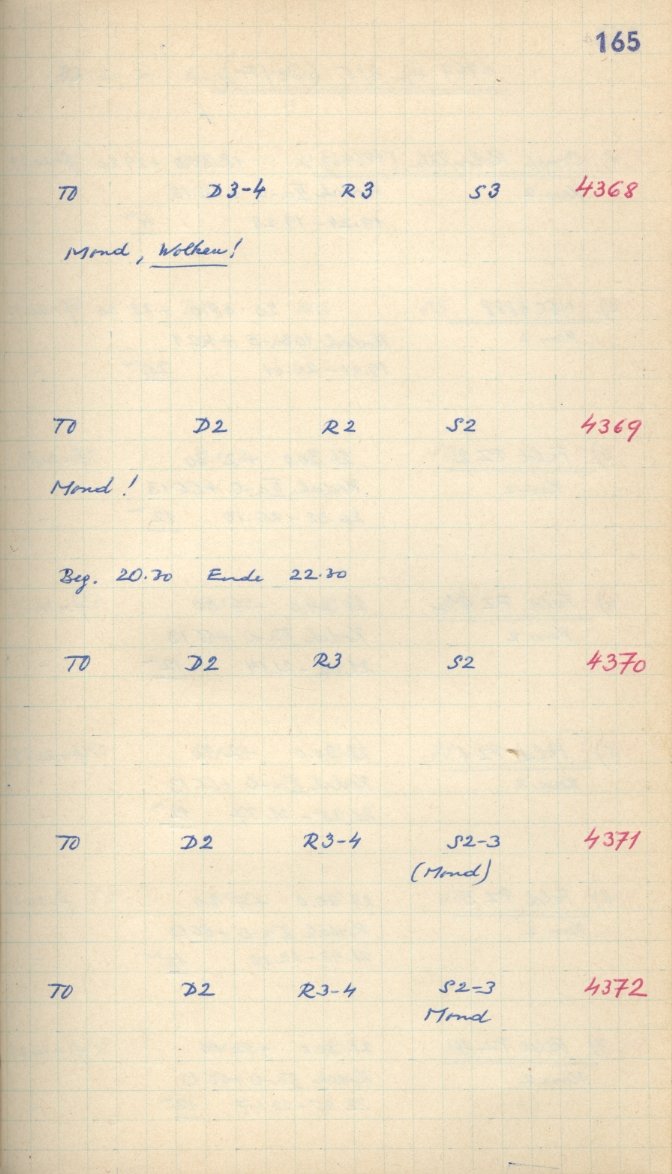 165
TO D3-4 R3 S3 4368
Mond, Wolken!
TO D2 R2 S2 4369
Mond!
Beg. 20.30 Ende 22.30
TO D2 R3 S2 4370
TO D2 R3-4 S2-3 4371
(Mond)
TO D2 R3-4 S2-3 4372
Mond